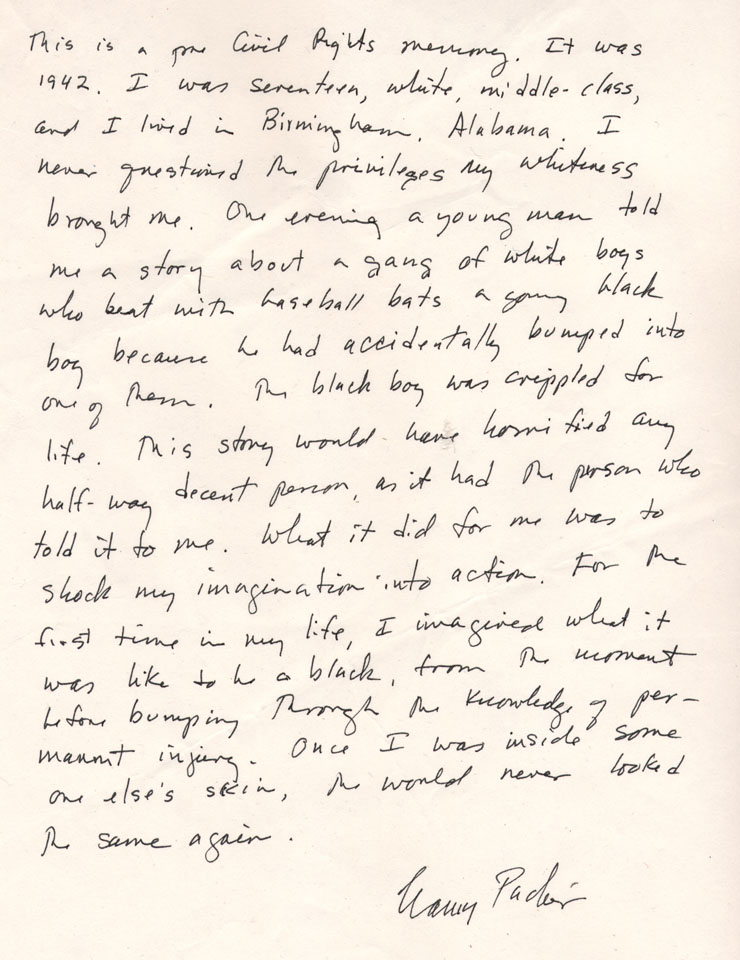 This is a pre Civil Rights memory. It was
1942. I was seventeen, white, middle-class,
and I lived in Birmingham, Alabama. I
never questioned the privileges my whiteness
brought me. One evening a young man told
me a story about a gang of white boys
who beat with baseball bats a young black
boy because he had accidentally bumped into
one of them. The black boy was crippled for
life. This story would have horrified any
half-way decent person, as it had the person who
told it to me. What it did for me was to
shock my imagination into action. For the
first time in my life, I imagined what it
was like to be a black, from the moment
before bumping through the knowledge of per-
manent injury. Once I was inside some
one else's skin, the would never looked
the same again.
Nancy Packer